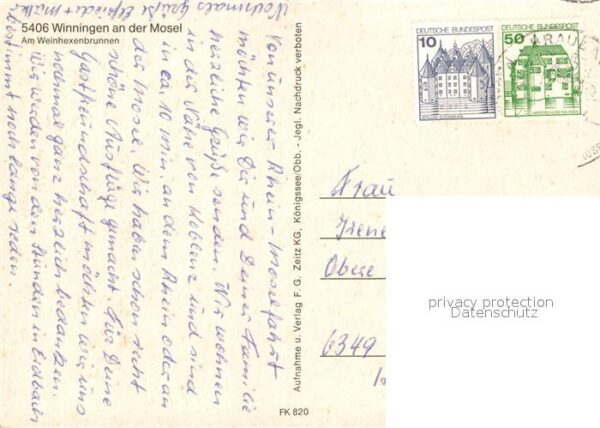 5406 Winningen an der Mosel
Am Weinhexenbrunnen
Von unserer Rhein-Moselfahrt
möchten wir Dir und Deiner Familie
herzliche Grüße senden. Wir wohnen
in der Nähe von Koblenz und sind
in ca. 10 min. an dem Rhein oder an
der Mosel. Wir haben schon sehr
schöne Ausflüge gemacht. Für Deine
Gastfreundschaft möchten wir uns
nochmal ganz herzlich bedanken.
Wir werden von den Stunden in Eibach
bestimmt noch lange reden.
Nochmals Grüße
Aufnahme u. Verlag F. G. Zeitz KG, Königssee/Obb. - Jegl. Nachdruck verboten
FK 820
10
DEUTSCHE BUNDESPOST
50
DEUTSCHE BUNDESPOST
Frau
Irene
Obere
6349
privacy protection
Datenschutz